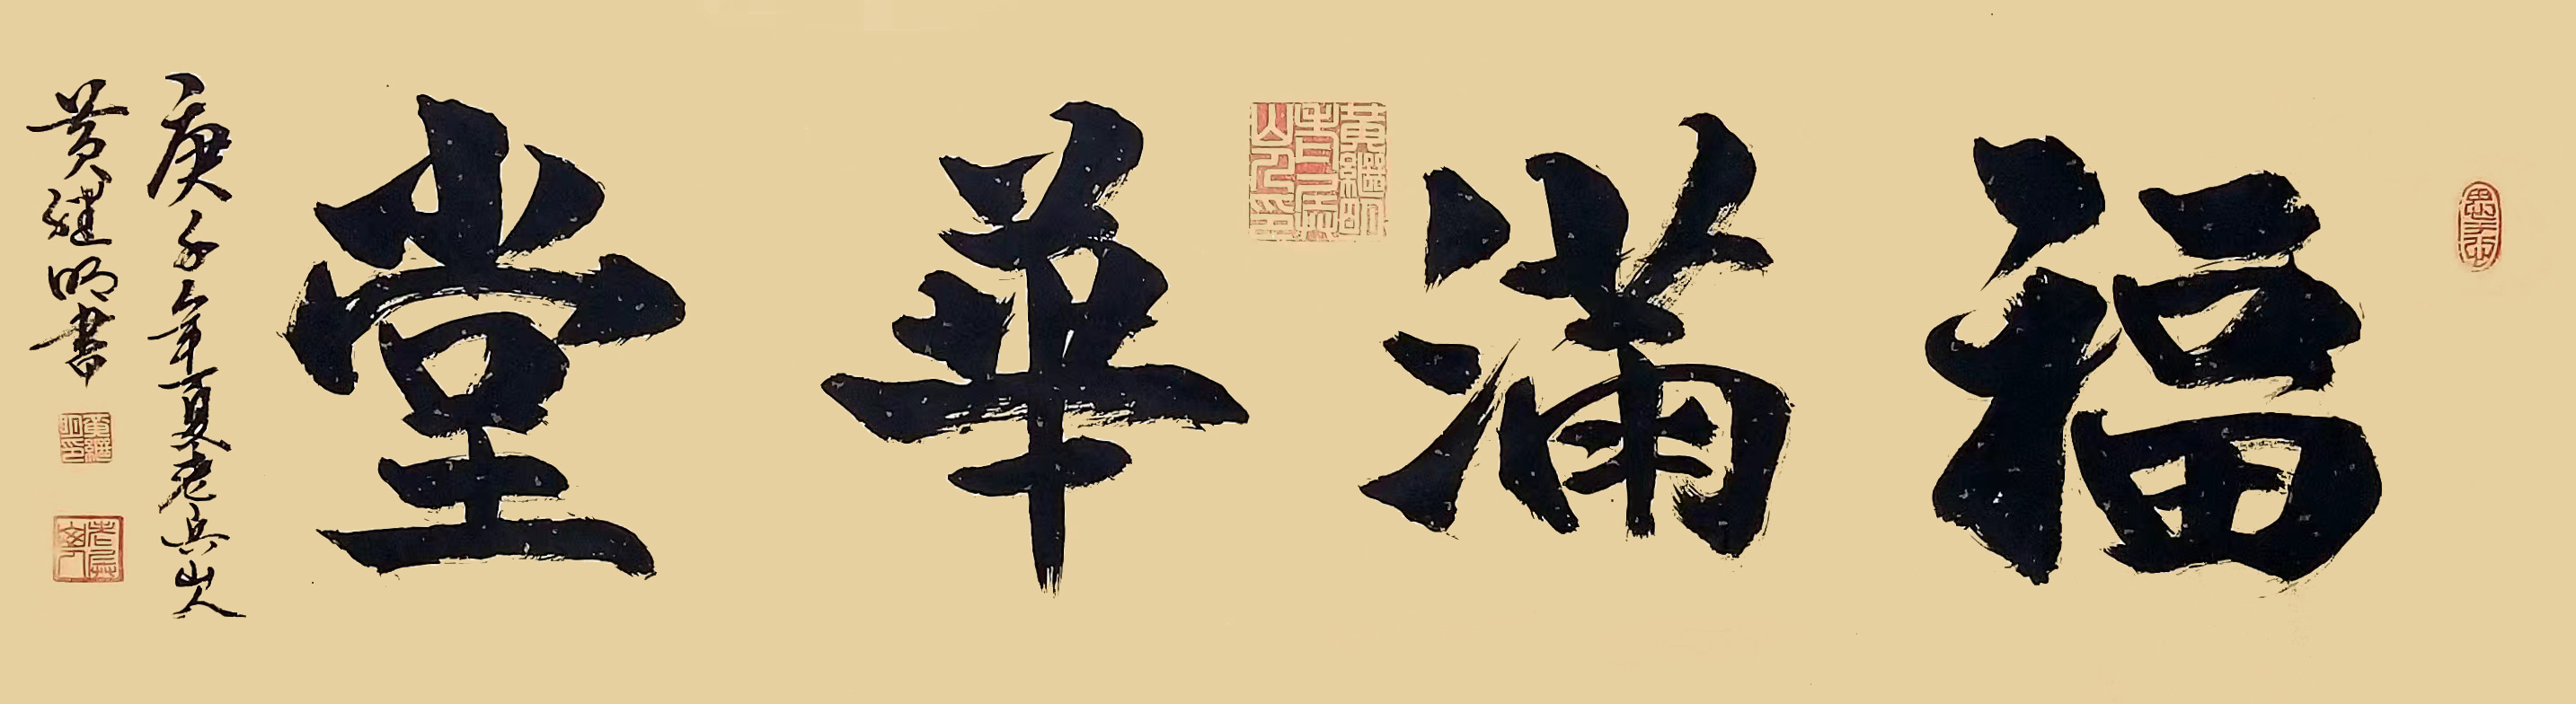 福滿華堂
庚子年夏老兵山人
黄继明书